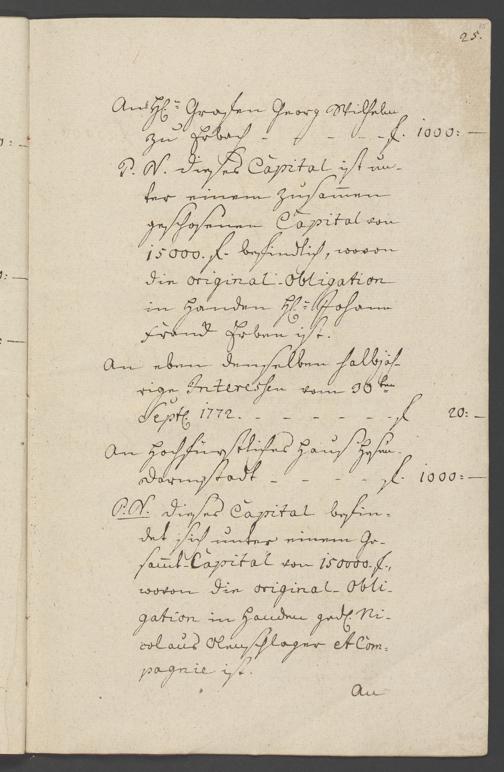 25.
An H: Grafen Georg Wilhelm
zu Erbach - - - - - f. 1000: —
P. N. dieses Capital ist un-
ter einem zusammen
geschossenen Capital von
15000. f. befindlich, wovon
die original-Obligation
in Handen H: Johann
Erben ist.
An eben denselben halbjäh-
rige Interessen vom 30ten
Septr. 1772. - - - - - f 20: —
An Hochfürstliches Hauß Heßen-
Darmstadt - - - - f. 1000: —
P. N. dieses Capital befin-
det sich unter einem Ge-
samt-Capital von 150000. f.,
wovon die original-Obli-
gation in Handen Ni-
colaus Olenschlager et Com-
pagnie ist.
An